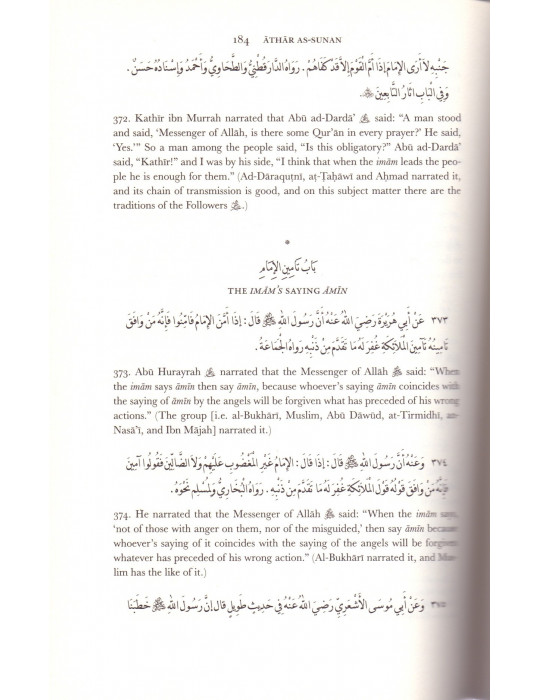 184 ĀTHĀR AS-SUNAN
جَنْبِهِ لاَ أَرَى الإِمَامَ إِذَا أَمَّ القَوْمَ إِلَّا قَدْ كَفَاهُمْ. رَوَاهُ الدَّارَقُطْنِيُّ وَالطَّحَاوِيُّ وَأَحْمَدُ وَإِسْنَادُهُ حَسَنٌ.
وَفِي البَابِ آثَارُ التَّابِعِينَ
372. Kathīr ibn Murrah narrated that Abū ad-Dardā’ said: “A man stood
and said, ‘Messenger of Allāh, is there some Qur’ān in every prayer?’ He said,
‘Yes.’” So a man among the people said, “Is this obligatory?” Abū ad-Dardā’
said, “Kathīr!” and I was by his side, “I think that when the imām leads the peo-
ple he is enough for them.” (Ad-Dāraquṭnī, aṭ-Ṭaḥāwī and Aḥmad narrated it,
and its chain of transmission is good, and on this subject matter there are the
traditions of the Followers .)
*
بَابُ تَامِينِ الإِمَامِ
THE IMĀM’S SAYING ĀMĪN
٣٧٣ عَنْ أَبِي هُرَيْرَةَ رَضِيَ اللهُ عَنْهُ أَنَّ رَسُولَ اللهِ ﷺ قَالَ: إِذَا أَمَّنَ الإِمَامُ فَأَمِّنُوا فَإِنَّهُ مَنْ وَافَقَ
تَامِينُهُ تَأْمِينَ المَلَائِكَةِ غُفِرَ لَهُ مَا تَقَدَّمَ مِنْ ذَنْبِهِ رَوَاهُ الجَمَاعَةُ.
373. Abū Hurayrah narrated that the Messenger of Allāh ﷺ said: “When
the imām says āmīn then say āmīn, because whoever’s saying āmīn coincides with
the saying of āmīn by the angels will be forgiven what has preceded of his wrong
actions.” (The group [i.e. al-Bukhārī, Muslim, Abū Dāwūd, at-Tirmidhī, an-
Nasā’ī, and Ibn Mājah] narrated it.)
٣٧٤ وَعَنْهُ أَنَّ رَسُولَ اللهِ ﷺ قَالَ: إِذَا قَالَ: الإِمَامُ غَيْرِ المَغْضُوبِ عَلَيْهِمْ وَلَا الضَّالِّينَ فَقُولُوا آمِينَ
فَإِنَّهُ مَنْ وَافَقَ قَوْلُهُ قَوْلَ المَلَائِكَةِ غُفِرَ لَهُ مَا تَقَدَّمَ مِنْ ذَنْبِهِ. رَوَاهُ البُخَارِيُّ وَلِمُسْلِمٍ نَحْوُهُ.
374. He narrated that the Messenger of Allāh ﷺ said: “When the imām says,
‘not of those with anger on them, nor of the misguided,’ then say āmīn because
whoever’s saying of it coincides with the saying of the angels will be forgiven
whatever has preceded of his wrong action.” (Al-Bukhārī narrated it, and Mus-
lim has the like of it.)
٣٧٥ وَعَنْ أَبِي مُوسَى الأَشْعَرِيِّ رَضِيَ اللهُ عَنْهُ فِي حَدِيثٍ طَوِيلٍ قَالَ إِنَّ رَسُولَ اللهِ ﷺ خَطَبَنَا